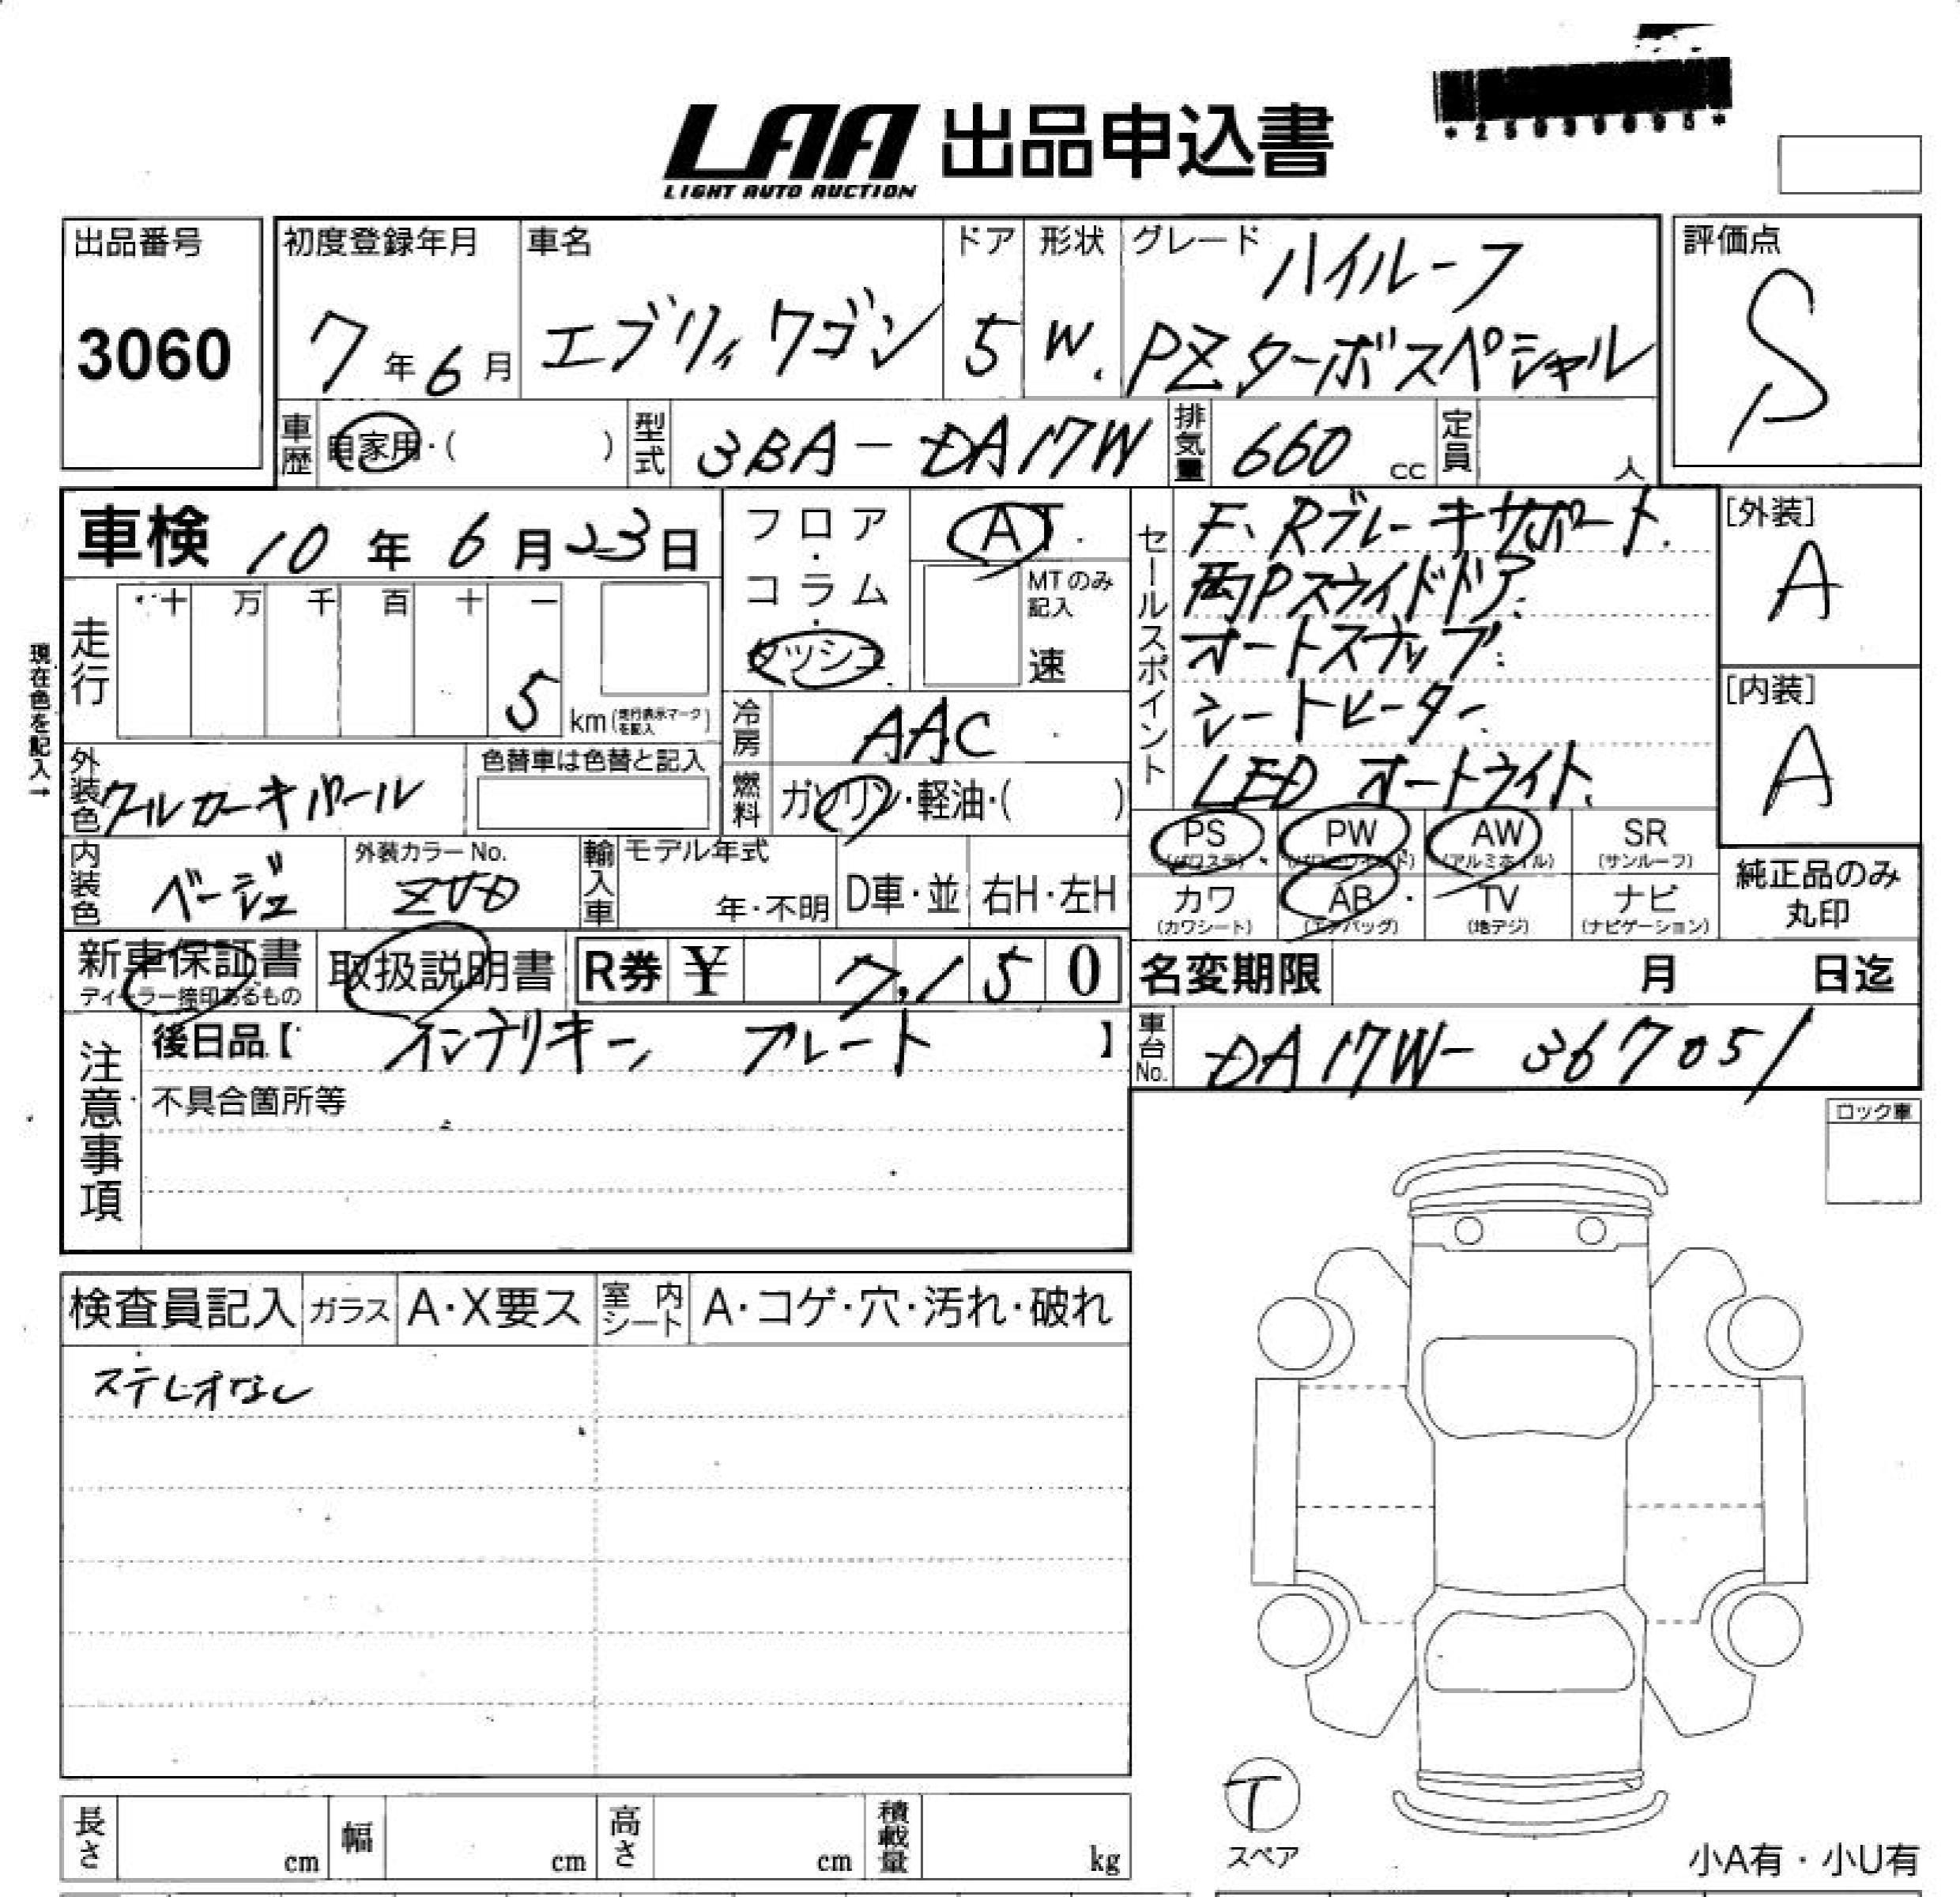 LAA 出品申込書
LIGHT AUTO AUCTION
出品番号
3060
初度登録年月
7年6月
車名
エブリィワゴン
ドア
5
形状
W.
グレード
ハイルーフ
PZターボスペシャル
評価点
S
車歴
自家用・( )
型式
3BA-DA17W
排気量
660 cc
定員
人
車検 10年6月23日
フロア・コラム・ダッシュ
AT
MTのみ記入
速
セールスポイント
F、Rブレーキサポート.
両Pスライドドア.
オートステップ.
シートヒーター.
LEDオートライト.
[外装]
A
[内装]
A
現在色を記入→
走行
十 万 千 百 十 一
5
km(走行表示マークを記入)
冷房
AAC
燃料
ガソリン・軽油・( )
外装色
クールカーキパール
色替車は色替と記入
PS
(パワステ)
PW
(パワーウインド)
AW
(アルミホイル)
SR
(サンルーフ)
カワ
(カワシート)
AB
(エアバッグ)
TV
(地デジ)
ナビ
(ナビゲーション)
純正品のみ
丸印
内装色
ベージュ
外装カラーNo.
ZVD
輸入車
モデル年式
年・不明
D車・並
右H・左H
新車保証書
ディーラー捺印あるもの
取扱説明書
R券 ¥ 7,150
名変期限 月 日迄
車台No.
DA17W-367051
注意事項
後日品【インテリキー、プレート】
不具合箇所等
ロック車
検査員記入
ガラス
A・X要ス
室内シート
A・コゲ・穴・汚れ・破れ
ステレオなし
T
スペア
長さ cm
幅 cm
高さ cm
積載量 kg
小A有・小U有